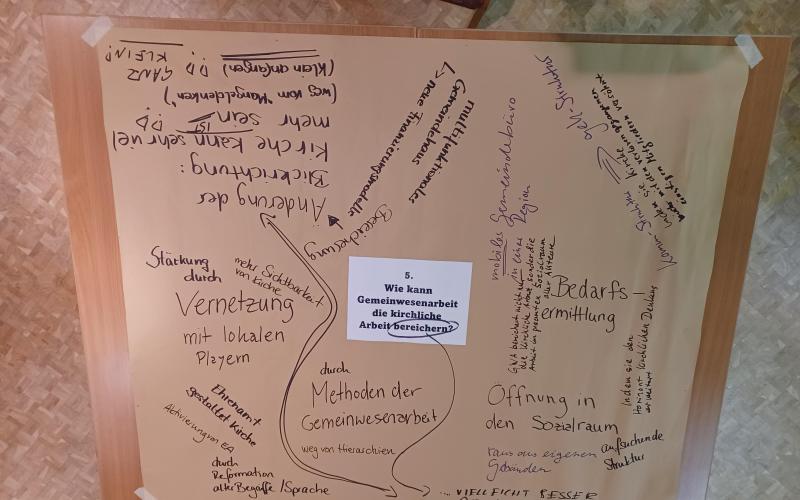 5.
Wie kann
Gemeinwesenarbeit
die kirchliche
Arbeit bereichern?
Änderung der
Blickrichtung:
Kirche kann sehr viel
mehr sein
IST
(weg vom "Mangeldenken")
(Klein anfangen)
GANZ
KLEIN!
multifunktionales
Gemeindehaus
↳ neue Finanzierungsmodelle
Bereicherung
mobiles Gemeindebüro
in einer
Region
Geh-Struktur
Komm-Struktur
Kirche
Stärkung
durch
mehr Sichtbarkeit
von Kirche
Vernetzung
mit lokalen
Playern
Ehrenamt
gestaltet Kirche
Aktivierung von EA
durch
Reformation
alter Begriffe / Sprache
durch
Methoden der
Gemeinwesenarbeit
weg von Hierarchien
Bedarfs-
ermittlung
GWA bereichert nicht nur
die kirchliche Arbeit, sondern die
Arbeit im gesamten Sozialraum
aller Akteure
Indem sie den
Horizont kirchlichen Denkens
erweitert
Öffnung in
den Sozialraum
raus aus eigenen
Gebäuden
aufsuchende
Struktur
... VIELLEICHT BESSER